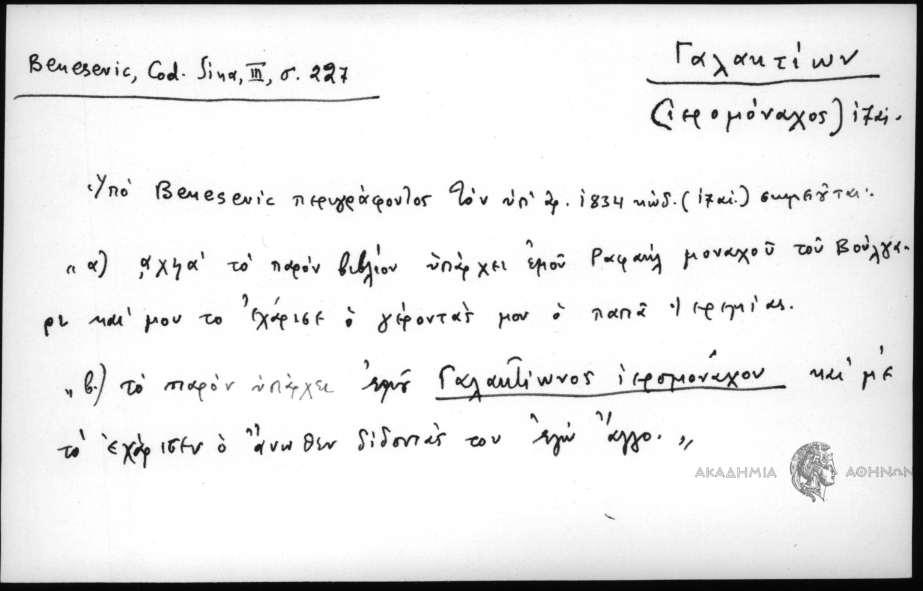 Benesevic, Cod. Sina, III, σ. 227
Γαλακτίων
(ιερομόναχος) ιζ αι.
Ὑπό Benesevic περιγράφοντος τὸν ὑπ' ἀρ. 1834 κώδ. (ιζ αι.) σημειοῦται:
"α) ͵αχϟα' τὸ παρὸν βιβλίον ὑπάρχει ἐμοῦ Ραφαὴλ μοναχοῦ τοῦ Βούλγα-
ρι καί μου το ἐχάρισε ὁ γέροντάς μου ὁ παπᾶ Ἱερεμίας.
"β.) τὸ παρὸν ὑπάρχει ἐμοῦ Γαλακτίωνος ἱερομονάχου καί μέ
τὸ ἐχάρισεν ὁ ἄνωθεν
ΑΚΑΔΗΜΙΑ ΑΘΗΝΩΝ